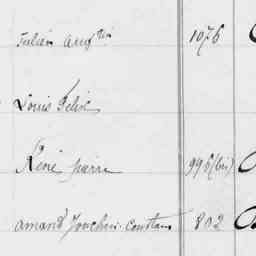 Julien Aug^tin 1076
Louis Félix
René Pierre 996(bis)
Amand Joachim Constant 802